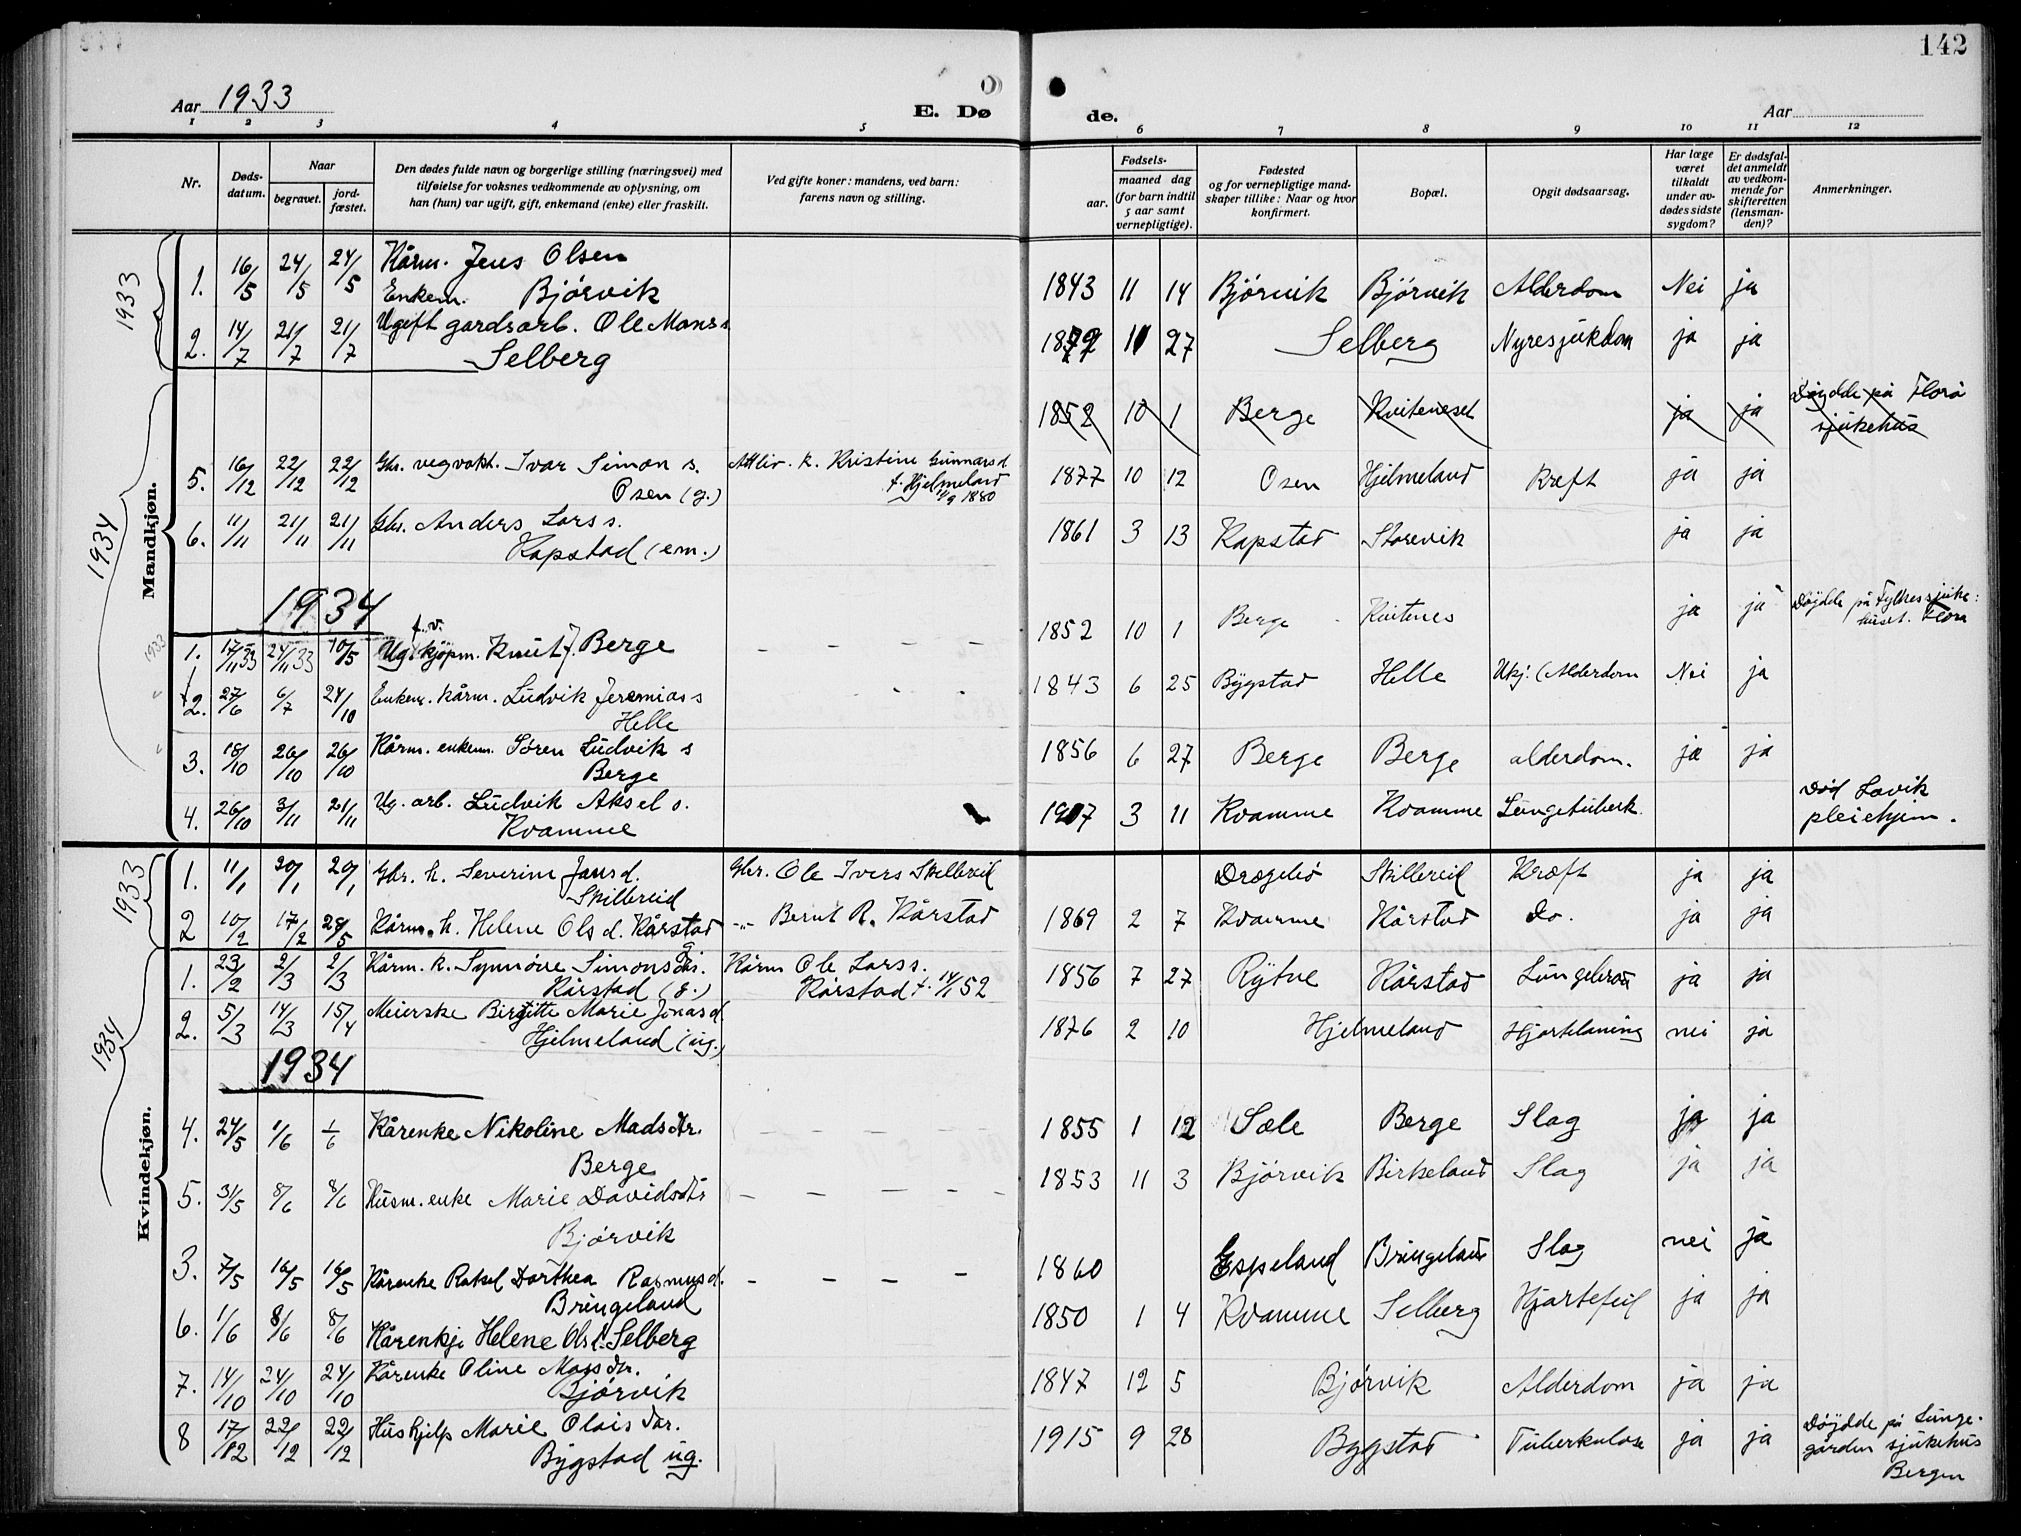 142
Aar 1933
E. Dø
de.
Aar
1 2 3 4 5 6 7 8 9 10 11 12
Nr.
Døds-
datum.
Naar
begravet.
jord-
fæstet.
Den dødes fulde navn og borgerlige stilling (næringsvei) med
tilføielse for voksnes vedkommende av oplysning, om
han (hun) var ugift, gift, enkemand (enke) eller fraskilt.
Ved gifte koner: mandens, ved barn:
farens navn og stilling.
Fødsels-
aar.
maaned dag
(for barn indtil
5 aar samt
vernepligtige).
Fødested
og for vernepligtige mand-
skaper tillike: Naar og hvor
konfirmert.
Bopæl.
Opgit dødsaarsag.
Har læge
været
tilkaldt
under av-
dødes sidste
sygdom?
Er dødsfal-
det anmeldt
av vedkom-
mende for
skifteretten
(lensman-
den)?
Anmerkninger.
Mandkjøn.
1933
1. 16/5 24/5 24/5 Kårm. Jens Olsen
Enkem. Bjørvik 1843 11 14 Bjørvik Bjørvik Alderdom Nei ja
2. 14/7 21/7 21/7 Ugift gardsarb. Ole Mons s.
Selberg 1872 11 27 Selberg Nyresjukdom ja ja
1934
1852 10 1 Berge Kviteneset ja ja Døydde på Florø
sjukehus
5. 16/12 22/12 22/12 Gbr. vegvakt. Ivar Simon s.
Osen (g.) Attliv. k. Kristine Gunnarsd.
f. Hjelmeland
11/9 1880 1877 10 12 Osen Hjelmeland Kræft ja ja
6. 11/11 21/11 21/11 Gbr. Anders Lars s.
Kapstad (em.) 1861 3 13 Kapstad Storevik ja ja
1934
1933
1. 17/11 33 24/11 33 10/5 Ug. f.v. kjøpm. Knut J. Berge 1852 10 1 Berge Kvitenes ja ja Døydde på Fylkessjuke-
huset. Florø
2. 27/6 6/7 24/10 Enkem. kårm. Ludvik Jeremias s
Helle 1843 6 25 Bygstad Helle Ukj. (Alderdom Nei ja
3. 18/10 26/10 26/10 Kårm. enkem. Søren Ludvik s
Berge 1856 6 27 Berge Berge alderdom. ja ja
4. 26/10 3/11 21/11 Ug. arb. Ludvik Aksel s.
Kvamme 1907 3 11 Kvamme Kvamme Lungetuberk. Død Lavik
pleiehjem.
Kvindekjøn.
1933
1. 11/1 20/1 20/1 Gbr. h. Severine Jans d.
Skilbreid Gbr. Ole Ivers Skilbreid Drægebø Skilbreid Kræft ja ja
2 10/2 17/2 28/5 Kårm. h. Helene Ols d. Kårstad -"- Bernt R. Kårstad 1869 2 7 Kvamme Kårstad Do. ja ja
1934
1. 23/2 2/3 2/3 Kårm. k. Synnöve Simons
Kårstad (g.) Kårm Ole Lars s.
Kårstad f. 14/1 52 1856 7 27 Rytne Kårstad ja ja
2. 5/3 14/3 15/4 Meierske Birgitte Marie Jonas d.
Hjelmeland (ug.) 1876 2 10 Hjelmeland Hjartelaming nei ja
1934
4. 24/5 1/6 1/6 Kårenke Nikoline Mads dtr.
Berge 1855 1 12 Sæle Berge Slag ja ja
5. 31/5 8/6 8/6 Husm. enke Marie Davidsdtr
Bjørvik 1853 11 3 Bjørvik Birkeland Slag ja ja
3. 7/5 16/5 16/5 Kårenke Rakel Dorthea Rasmus d.
Bringeland 1860 Espeland Bringeland Slag nei ja
6. 1/6 8/6 8/6 Kårenkje Helene Ols d. Selberg 1850 1 4 Kvamme Selberg Hjartefeil ja ja
7. 14/10 24/10 24/10 Kårenke Oline Mons dtr.
Bjørvik 1847 12 5 Bjørvik Alderdom ja ja
8 17/12 22/12 22/12 Hushjelp Marie Olais dtr.
Bygstad ug. 1915 9 28 Bygstad Tuberkulose ja ja Døydde på Lunge-
gården sjukehus
Bergen